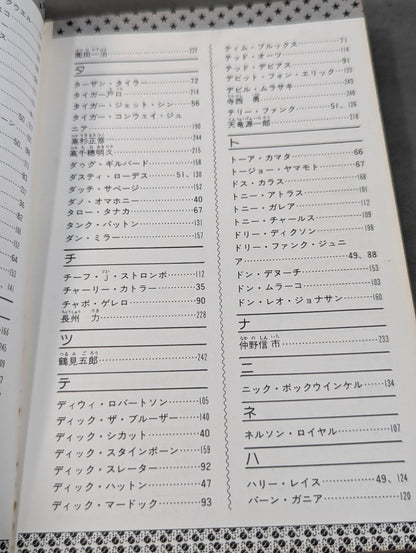 薗田一治 222
タ
ターザン・タイラー 72
タイガー戸口
タイガー・ジェット・シン 56
タイガー・コンウェイ・ジュ
ニア 190
高杉正彦 244
高千穂明久
ダグ・ギルバード 158
ダスティ・ローデス 51、130
ダッチ・サベージ 152
ダノ・オマホニー 40
タロー・タナカ 67
タンク・パットン 131
ダン・ミラー 157
チ
チーフ・J・ストロンボ 112
チャーリー・カトラー 35
チャボ・ゲレロ 90
長州 力 228
ツ
鶴見五郎 242
テ
ディウィ・ロバートソン 105
ディック・ザ・ブルーザー 140
ディック・シカット 40
ディック・スタインボーン 159
ディック・スレーター 92
ディック・ハットン 47
ディック・マードック 93
ティム・ブルックス 71
テッド・オーツ 114
テッド・デビアス 91
デビット・フォン・エリック
デビル・ムラサキ
寺西 勇
テリー・ファンク 51、
天竜源一郎 218
ト
トーア・カマタ 66
トージョー・ヤマモト 67
ドス・カラス 188
トニー・アトラス 191
トニー・ガレア 112
トニー・チャールス 109
ドリー・ディクソン
ドリー・ファンク・ジュニ
ア 49、88
ドン・デヌーチ 153
ドン・ムラーコ 103
ドン・レオ・ジョナサン 160
ナ
仲野信市 233
ニ
ニック・ボックウインケル 134
ネ
ネルソン・ロイヤル 107
ハ
ハリー・レイス 49、124
バーン・ガニア 120